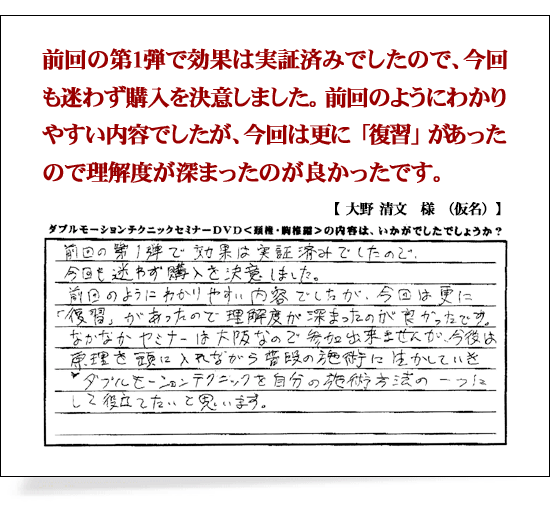 前回の第1弾で効果は実証済みでしたので、今回
も迷わず購入を決意しました。前回のようにわかり
やすい内容でしたが、今回は更に「復習」があった
ので理解度が深まったのが良かったです。
【 大野 清文　様　（仮名）】
ダブルモーションテクニックセミナーDVD＜頚椎・胸椎編＞の内容は、いかがでしたでしょうか？
前回の第1弾で効果は実証済みでしたので、
今回も迷わず購入を決意しました。
前回のようにわかりやすい内容でしたが、今回は更に
「復習」があったので理解度が深まったのが良かったです。
なかなかセミナーは大阪なので参加出来ませんが、今後は
原理を頭に入れながら普段の施術に生かしていき
ダブルモーションテクニックを自分の施術方法の一つに
して役立てたいと思います。